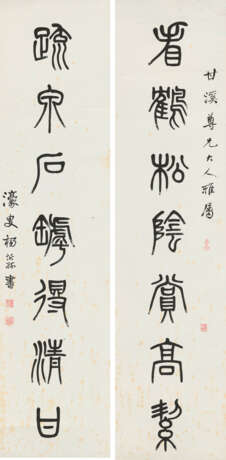 甘溪尊兄大人雅屬
看鶴松陰賞高絜
疏泉石罅得清甘
濠叟楊沂孫書